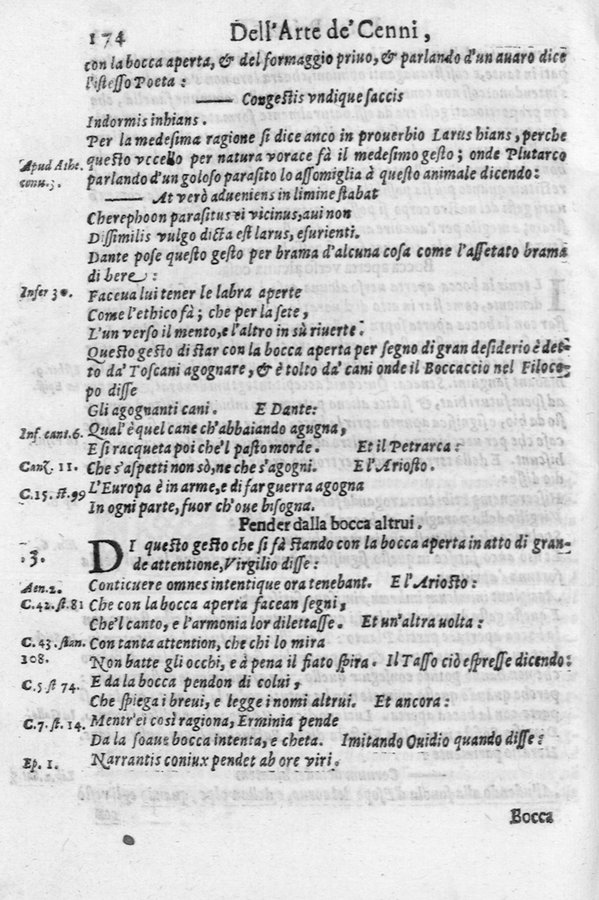 174 Dell'Arte de' Cenni,
con la bocca aperta, & del formaggio priuo, & parlando d'un auaro dice
l'istesso Poeta:
—— Congestis vndique saccis
Indormis inhians.
Per la medesima ragione si dice anco in prouerbio Larus hians, perche
Apud Athe. questo vccello per natura vorace fà il medesimo gesto; onde Plutarco
conu. 3. parlando d'un goloso parasito lo assomiglia à questo animale dicendo:
—— At verò adueniens in limine stabat
Cherephoon parasitus ei vicinus, aui non
Dissimilis vulgo dicta est larus, esurienti.
Dante pose questo gesto per brama d'alcuna cosa come l'assetato brama
di bere:
Infer 30. Faceua lui tener le labra aperte
Come l'ethico fà; che per la sete,
L'un verso il mento, e l'altro in sù riuerte.
Questo gesto di star con la bocca aperta per segno di gran desiderio è det-
to da' Toscani agognare, & è tolto da' cani onde il Boccaccio nel Filoco-
po disse
Gli agognanti cani. E Dante:
Inf. cant. 6. Qual'è quel cane ch'abbaiando agugna,
E si racqueta poi che'l pasto morde. Et il Petrarca:
Canz. 11. Che s'aspetti non sò, ne che s'agogni. E l'Ariosto.
C. 15. st. 99 L'Europa è in arme, e di far guerra agogna
In ogni parte, fuor ch'oue bisogna.
Pender dalla bocca altrui.
.3. DI questo gesto che si fà stando con la bocca aperta in atto di gran-
de attentione, Virgilio disse:
Aen. 2. Conticuere omnes intentique ora tenebant. E l'Ariosto:
C. 42. st. 81 Che con la bocca aperta facean segni,
Che'l canto, e l'armonia lor dilettasse. Et un'altra uolta:
C. 43. stan. Con tanta attention, che chi lo mira
108. Non batte gli occhi, e à pena il fiato spira. Il Tasso ciò espresse dicendo:
C. 5 st 74. E da la bocca pendon di colui,
Che spiega i breui, e legge i nomi altrui. Et ancora:
C. 7. st. 14. Mentr'ei così ragiona, Erminia pende
Da la soaue bocca intenta, e cheta. Imitando Ouidio quando disse:
Ep. 1. Narrantis coniux pendet ab ore viri.
Bocca